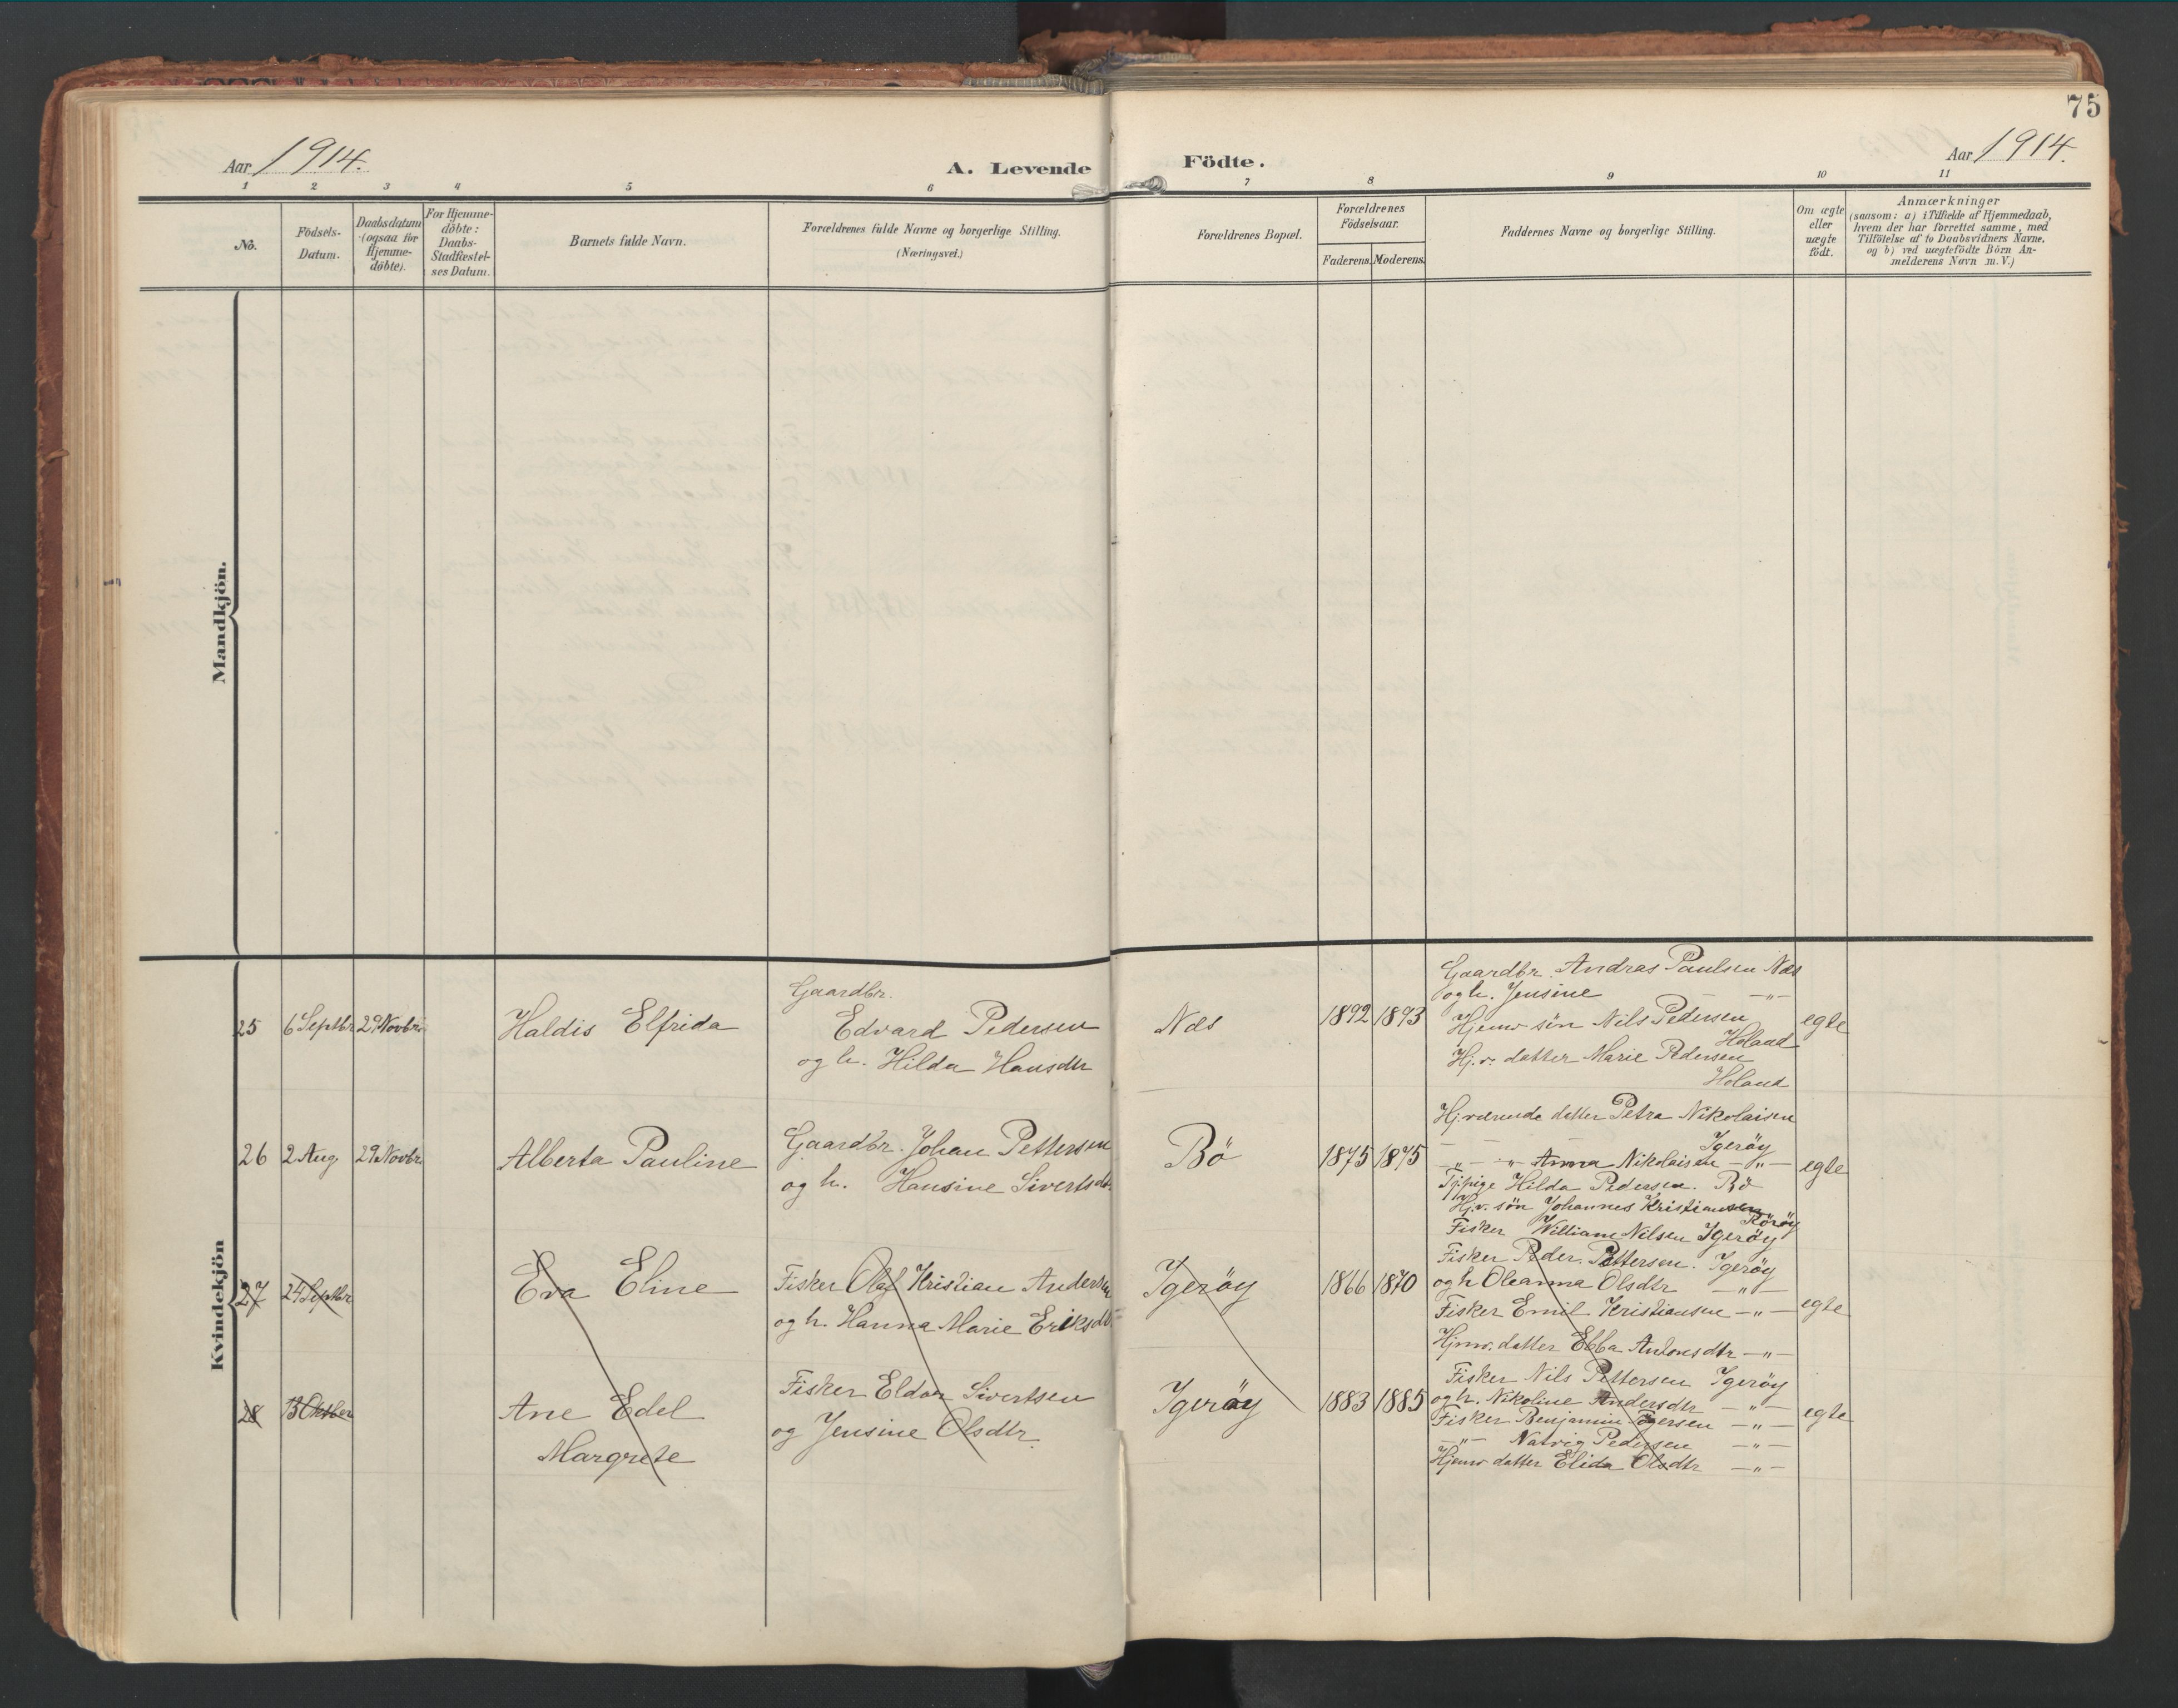 75
Aar 1914.
A. Levende Födte.
Aar 1914.
1 2 3 4 5 6 7 8 9 10 11
No.
Födsels-
Datum.
Daabsdatum
(ogsaa for
Hjemme-
döbte).
For Hjemme-
döbte:
Daabs-
Stadfæstel-
ses Datum.
Barnets fulde Navn.
Forældrenes fulde Navne og borgerlige Stilling.
(Næringsvei.)
Forældrenes Bopæl.
Forældrenes
Födselsaar.
Faderens. Moderens.
Faddernes Navne og borgerlige Stilling.
Om ægte
eller
uægte
födt.
Anmærkninger
(saasom: a) i Tilfælde af Hjemmedaab,
hvem der har forrettet samme, med
Tilföielse af to Daabsvidners Navne.
og b) ved uægtefödte Börn An-
melderens Navn m. V.)
Mandkjön.
Kvindekjön
25 6 Septbr 29 Novbr.
Haldis Elfrida
Gaardbr.
Edvard Pedersen
og h. Hilda Hansdtr
Næs
1892 1893
Gaardbr. Andras Paulsen Næs
og h. Jensine — " —
Hjemv søn Nils Pedersen
Holand
Hj.v. datter Marie Pedersen
Holand
egte
26 2 Aug. 29 Novbr.
Alberta Pauline
Gaardbr. Johan Pettersen
og h. Hansine Sivertsdtr.
Bö
1875 1875
Hj.værende datter Petra Nikolaisen
Igeröy
— " — " Anna Nikolaisen — " —
Tj.pige Hilda Pedersen. Bö
Hj.v. søn Johannes Kristiansen
Röröy
Fisker William Nilsen Igeröy
egte
27 24 Septbr
Eva Eline
Fisker Olaf Kristian Andersen
og h. Hanna Marie Eriksdtr.
Igeröy
1866 1870
Fisker Peder Pettersen. Igeröy
og h Oleanna Olsdtr — " —
Fisker Emil Kristiansen — " —
Hjmv. datter Ebba Antonsdtr — " —
egte
28 13 Oktber
Ane Edel
Margrete
Fisker Eldor Sivertsen
og Jensine Olsdtr.
Igeröy
1883 1885
Fisker Nils Pettersen Igeröy
og h. Nikoline Andersdtr — " —
Fisker Benjamin — " —
— " — Natvig Pedersen — " —
Hjemv datter Elida Olsdtr — " —
egte